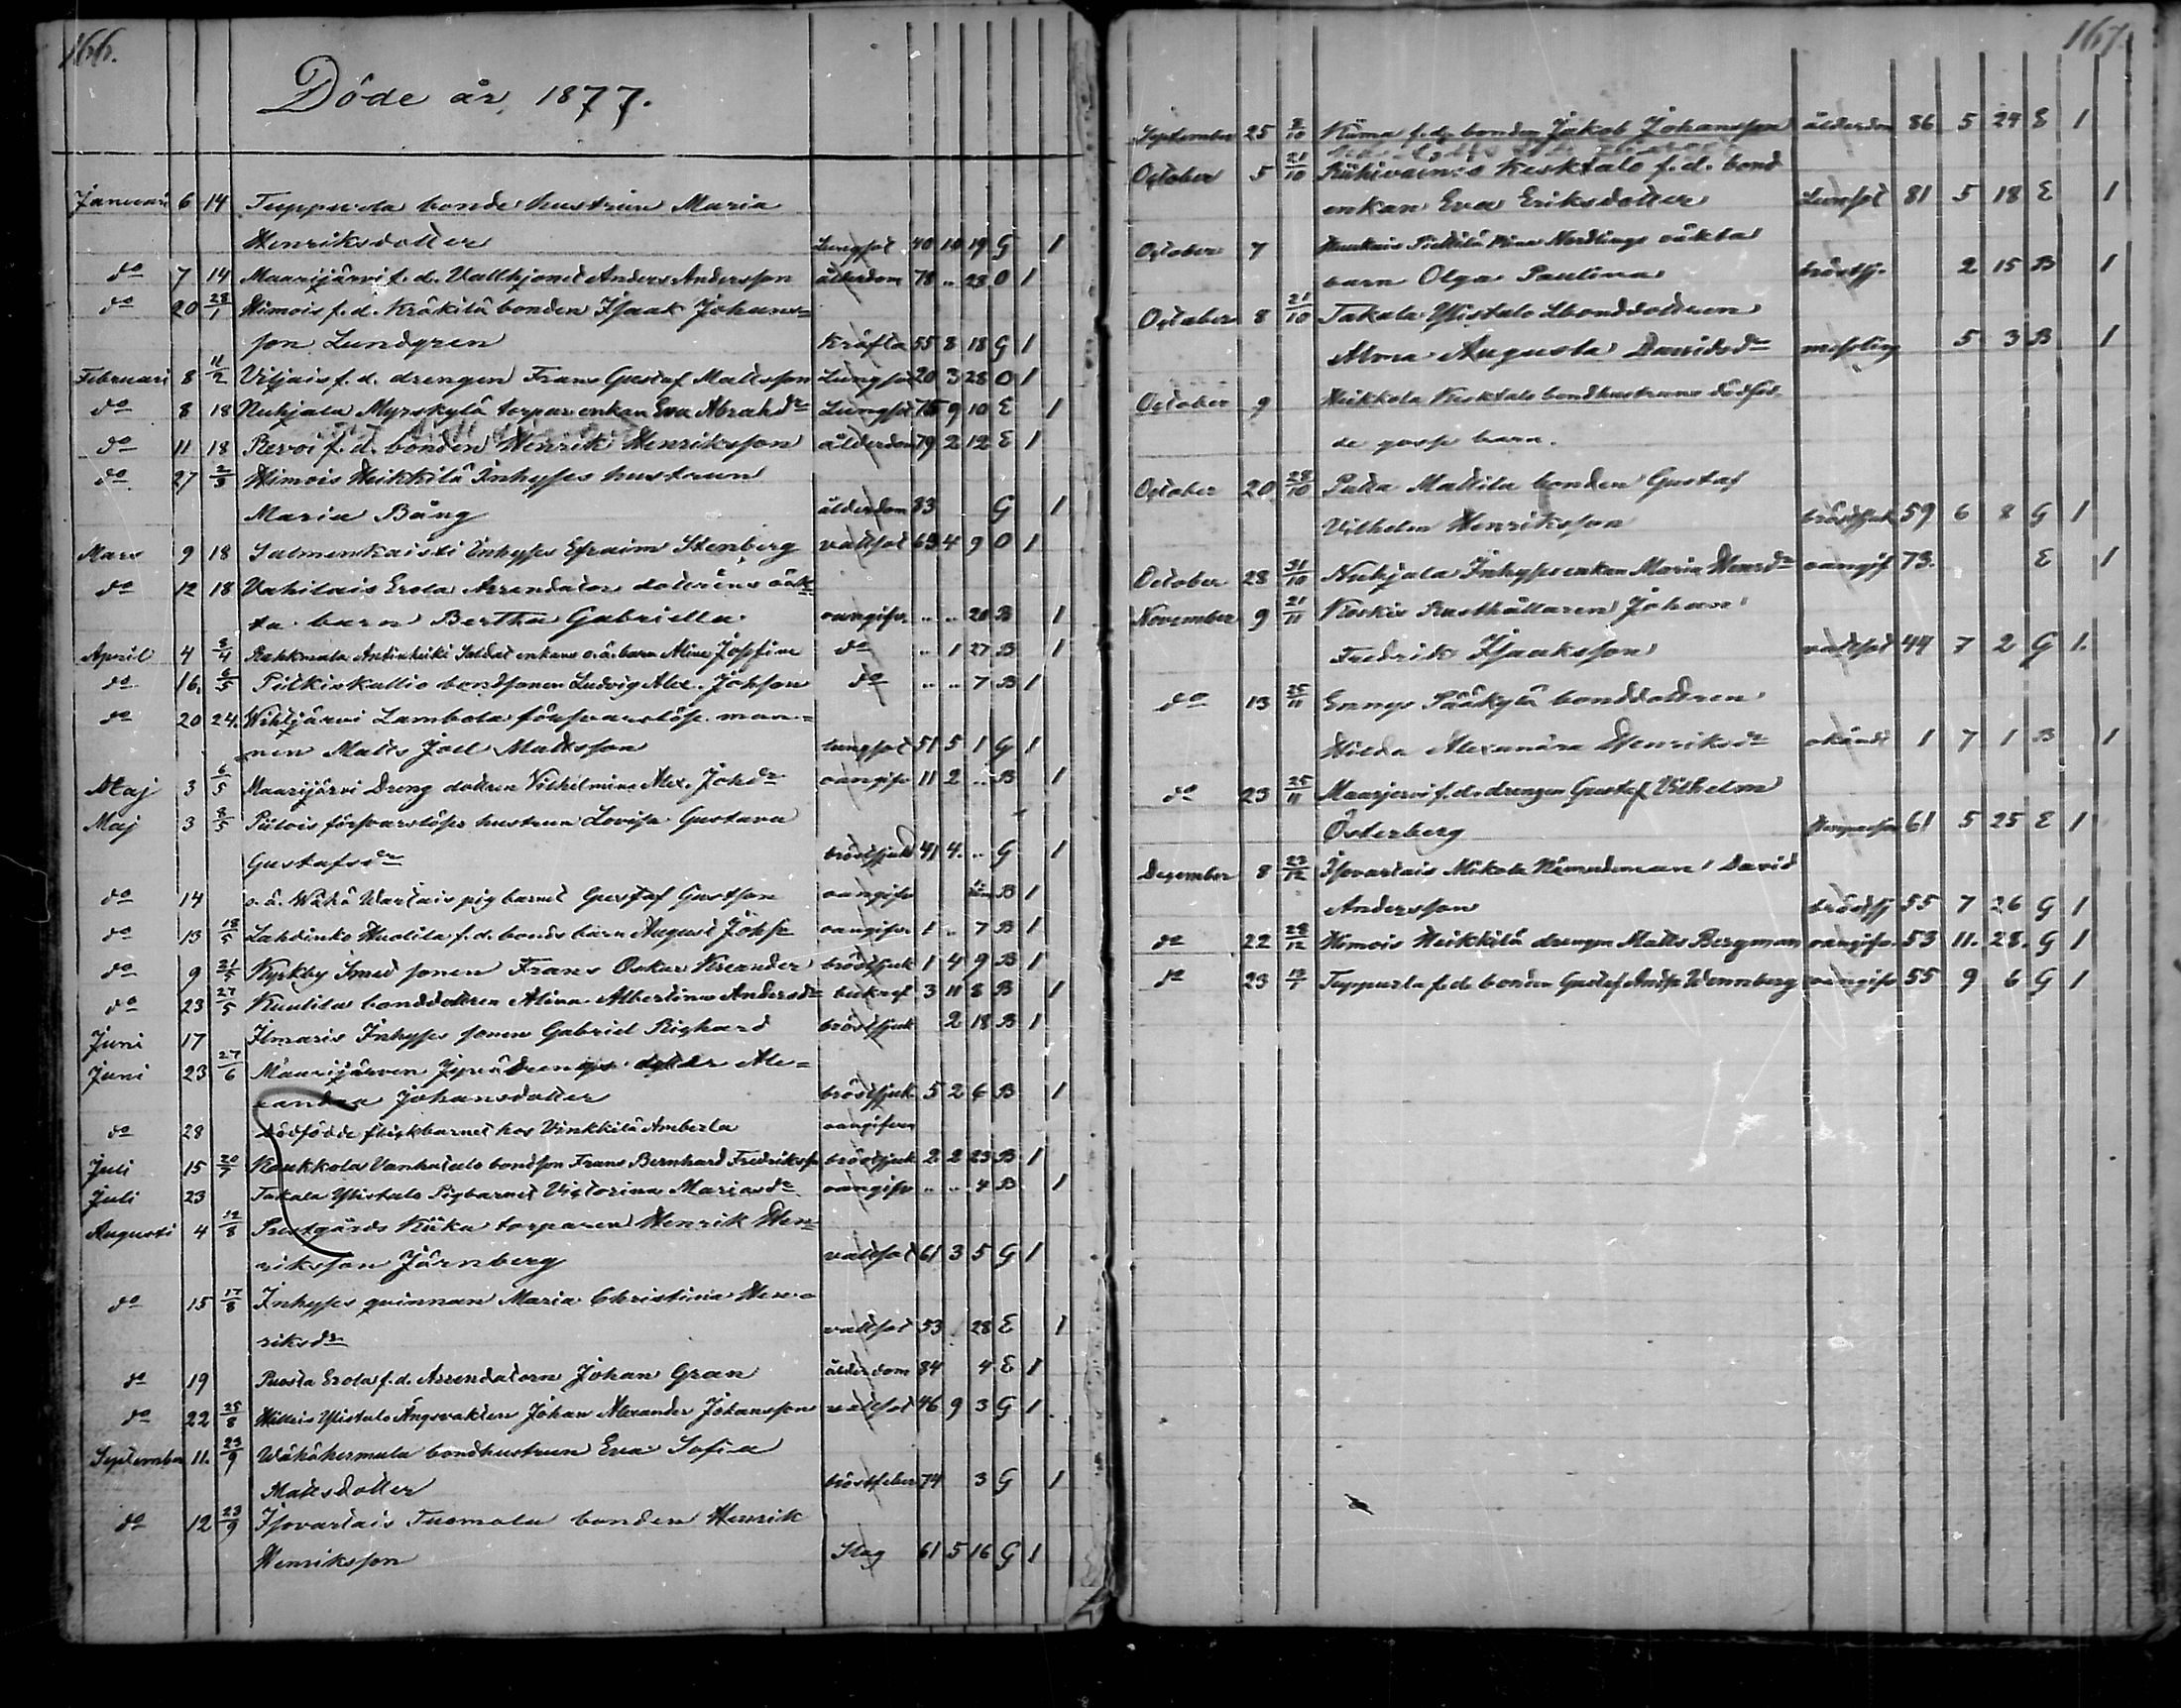 166.
Döde år 1877.
Januari 6 14 Tuppurla bonde hustrun Maria
Henriksdotter Lungsot 40 10 19 G 1
do 7 14 Maarijärvi f. d. Vallhjonet Anders Andersson ålderdom 78 .. 23 O 1
do 20 28/1 Himois f. d. Kräkilä bonden Isaak Johans=
son Lundgren Kräfta 55 8 18 G 1
Februari 8 11/2 Viljais f. d. drengen Frans Gustaf Mattsson Lungsot 20 3 28 O 1
do 8 18 Nuhjala Myrskylä torpar enkan Eva Abrahdr Lungsot 75 9 10 E 1
do 11 18 Rervoi f. d. bonden Henrik Henriksson ålderdom 79 2 12 E 1
do 27 2/3 Himois Heikkilä Inhyses hustrun
Maria Bång ålderdom 83 G 1
Mars 9 18 Salmenkaisti Inhyses Efraim Stenberg vattsot 63 4 9 O 1
do 12 18 Vahilais Erola Arrendator dotterens oäk
ta barn Bertha Gabriella oangifv. .. .. 20 B 1
April 4 8/4 Soldat enkans o.ä. barn Alina Josefina do .. 1 27 B 1
do 16. 6/5 Pitkiskallio bondsonen Ludvig Alex. Johsson do .. .. 7 B 1
do 20 24. Wehljärvi Lambola försvarslöse man=
nen Matts Joel Mattsson lungsot 51 5 1 G 1
Maj 3 6/5 Maarijärvi Dreng dottren Vilhelmina Alex. Johdr oangifv 11 2 .. B 1
Maj 3 8/5 försvarslöse hustrun Lovisa Gustava
Gustafsdr bröstsjuk 41 4. .. G 1
do 14 o.ä. Wähä Vartais pigbarnet Gustaf Gustson oangifv B 1
do 13 18/5 Lahdinko Huolila f. d. bonds barn August Johss oangifv. 1 .. 7 B 1
do 9 21/5 Kyrkby Smed sonen Frans Oskar Kreander bröstsjuk 1 4 9 B 1
do 23 27/5 Kuulila bonddottren Alina Albertina Andersdr 3 11 8 B 1
Juni 17 Ilmaris Inhyses sonen Gabriel Righard bröstsjuk 2 18 B 1
Juni 23 27/6 Maarijärven Jyrä Drengs dotter Ale=
xandra Johansdotter bröstsjuk 5 2 6 B 1
do 28 Dödfödde flickbarnet hos Vinkkilä Amberla oangifven
Juli 15 20/7 Kaukkola Vanhatalo bondson Frans Bernhard Fredrikss bröstsjuk 2 2 23 B 1
Juli 23 Takala Ylistalo Pigbarnet Victorina Mariasdr oangifv .. .. 4 B 1
Augusti 4 12/8 Prestgårds Kiika torparen Henrik Hen=
riksson Järnberg vattsot 61 3 5 G 1
do 15 17/8 Inhyses qvinnan Maria Christina Hen=
riksdr vattsot 53 . 28 E 1
do 19 Puosta Erola f. d. Arrendatorn Johan Gran ålderdom 84 4 E 1
do 22 25/8 Ylistalo Ängsvakten Johan Alexander Johansson vattsot 46 9 3 G 1
September 11. 23/9 Wähähermala bondhustrun Eva Sofia
Mattsdotter bröstfeber 74 3 G 1
do 12 23/9 Isovartais Tuomola bonden Henrik
Henriksson Slag 61 5 16 G 1
167.
September 25 2/10 Kiima f. d. bonden Jakob Johansson ålderdom 86 5 24 E 1
October 5 21/10 Riihivainio Keskitalo f. d. bond
enkan Eva Eriksdotter Lunsot 81 5 18 E 1
October 7 Pietilä Mina Nordlings oäkta
barn Olga Paulina bröstsj. 2 15 B 1
October 8 21/10 Takala Ylistalo bonddottren
Alma Augusta Davidsdr messling 5 3 B 1
October 9 Heikkola Keskitalo bondhustruns dödföd-
de goss barn.
October 20 28/10 Palla Mattila bonden Gustaf
Vilhelm Henriksson bröstsjuk 59 6 8 G 1
October 28 31/10 Nuhjala Inhyses enkan Maria Henrdr oangif 73. E 1
November 9 21/11 Koskis Rusthållaren Johan
Fredrik Isaaksson vattsot 44 7 2 G 1.
do 13 25/11 Ennys Pääkylä bonddottren
Hilda Alexandra Henriksdr okändt 1 7 1 B 1
do 23 25/11 Maarjervi f. d. drengen Gustaf Vilhelm
Österberg 61 5 25 E 1
Dezember 8 23/12 Isovartais Mikola Nämndeman David
Andersson bröstsj 55 7 26 G 1
do 22 28/12 Himois Heikkilä drengen Matts Bergman oangifv. 53 11. 28. G 1
do 23 Tuppurla f. d. bonden Gustaf Andss Wennberg oangifv 55 9 6 G 1